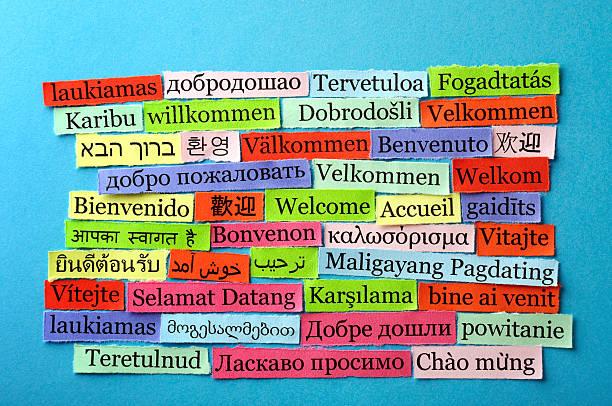 laukiamas добродошао Tervetuloa Fogadtatás
Karibu willkommen Dobrodošli Velkommen
ברוך הבא 환영 Välkommen Benvenuto 欢迎
добро пожаловать Velkommen Welkom
Bienvenido 歡迎 Welcome Accueil gaidīts
आपका स्वागत है Bonvenon καλωσόρισμα Vitajte
ยินดีต้อนรับ خوش آمد ترحيب Maligayang Pagdating
Vítejte Selamat Datang Karşılama bine ai venit
laukiamas მოგესალმებით Добре дошли powitanie
Teretulnud Ласкаво просимо Chào mừng